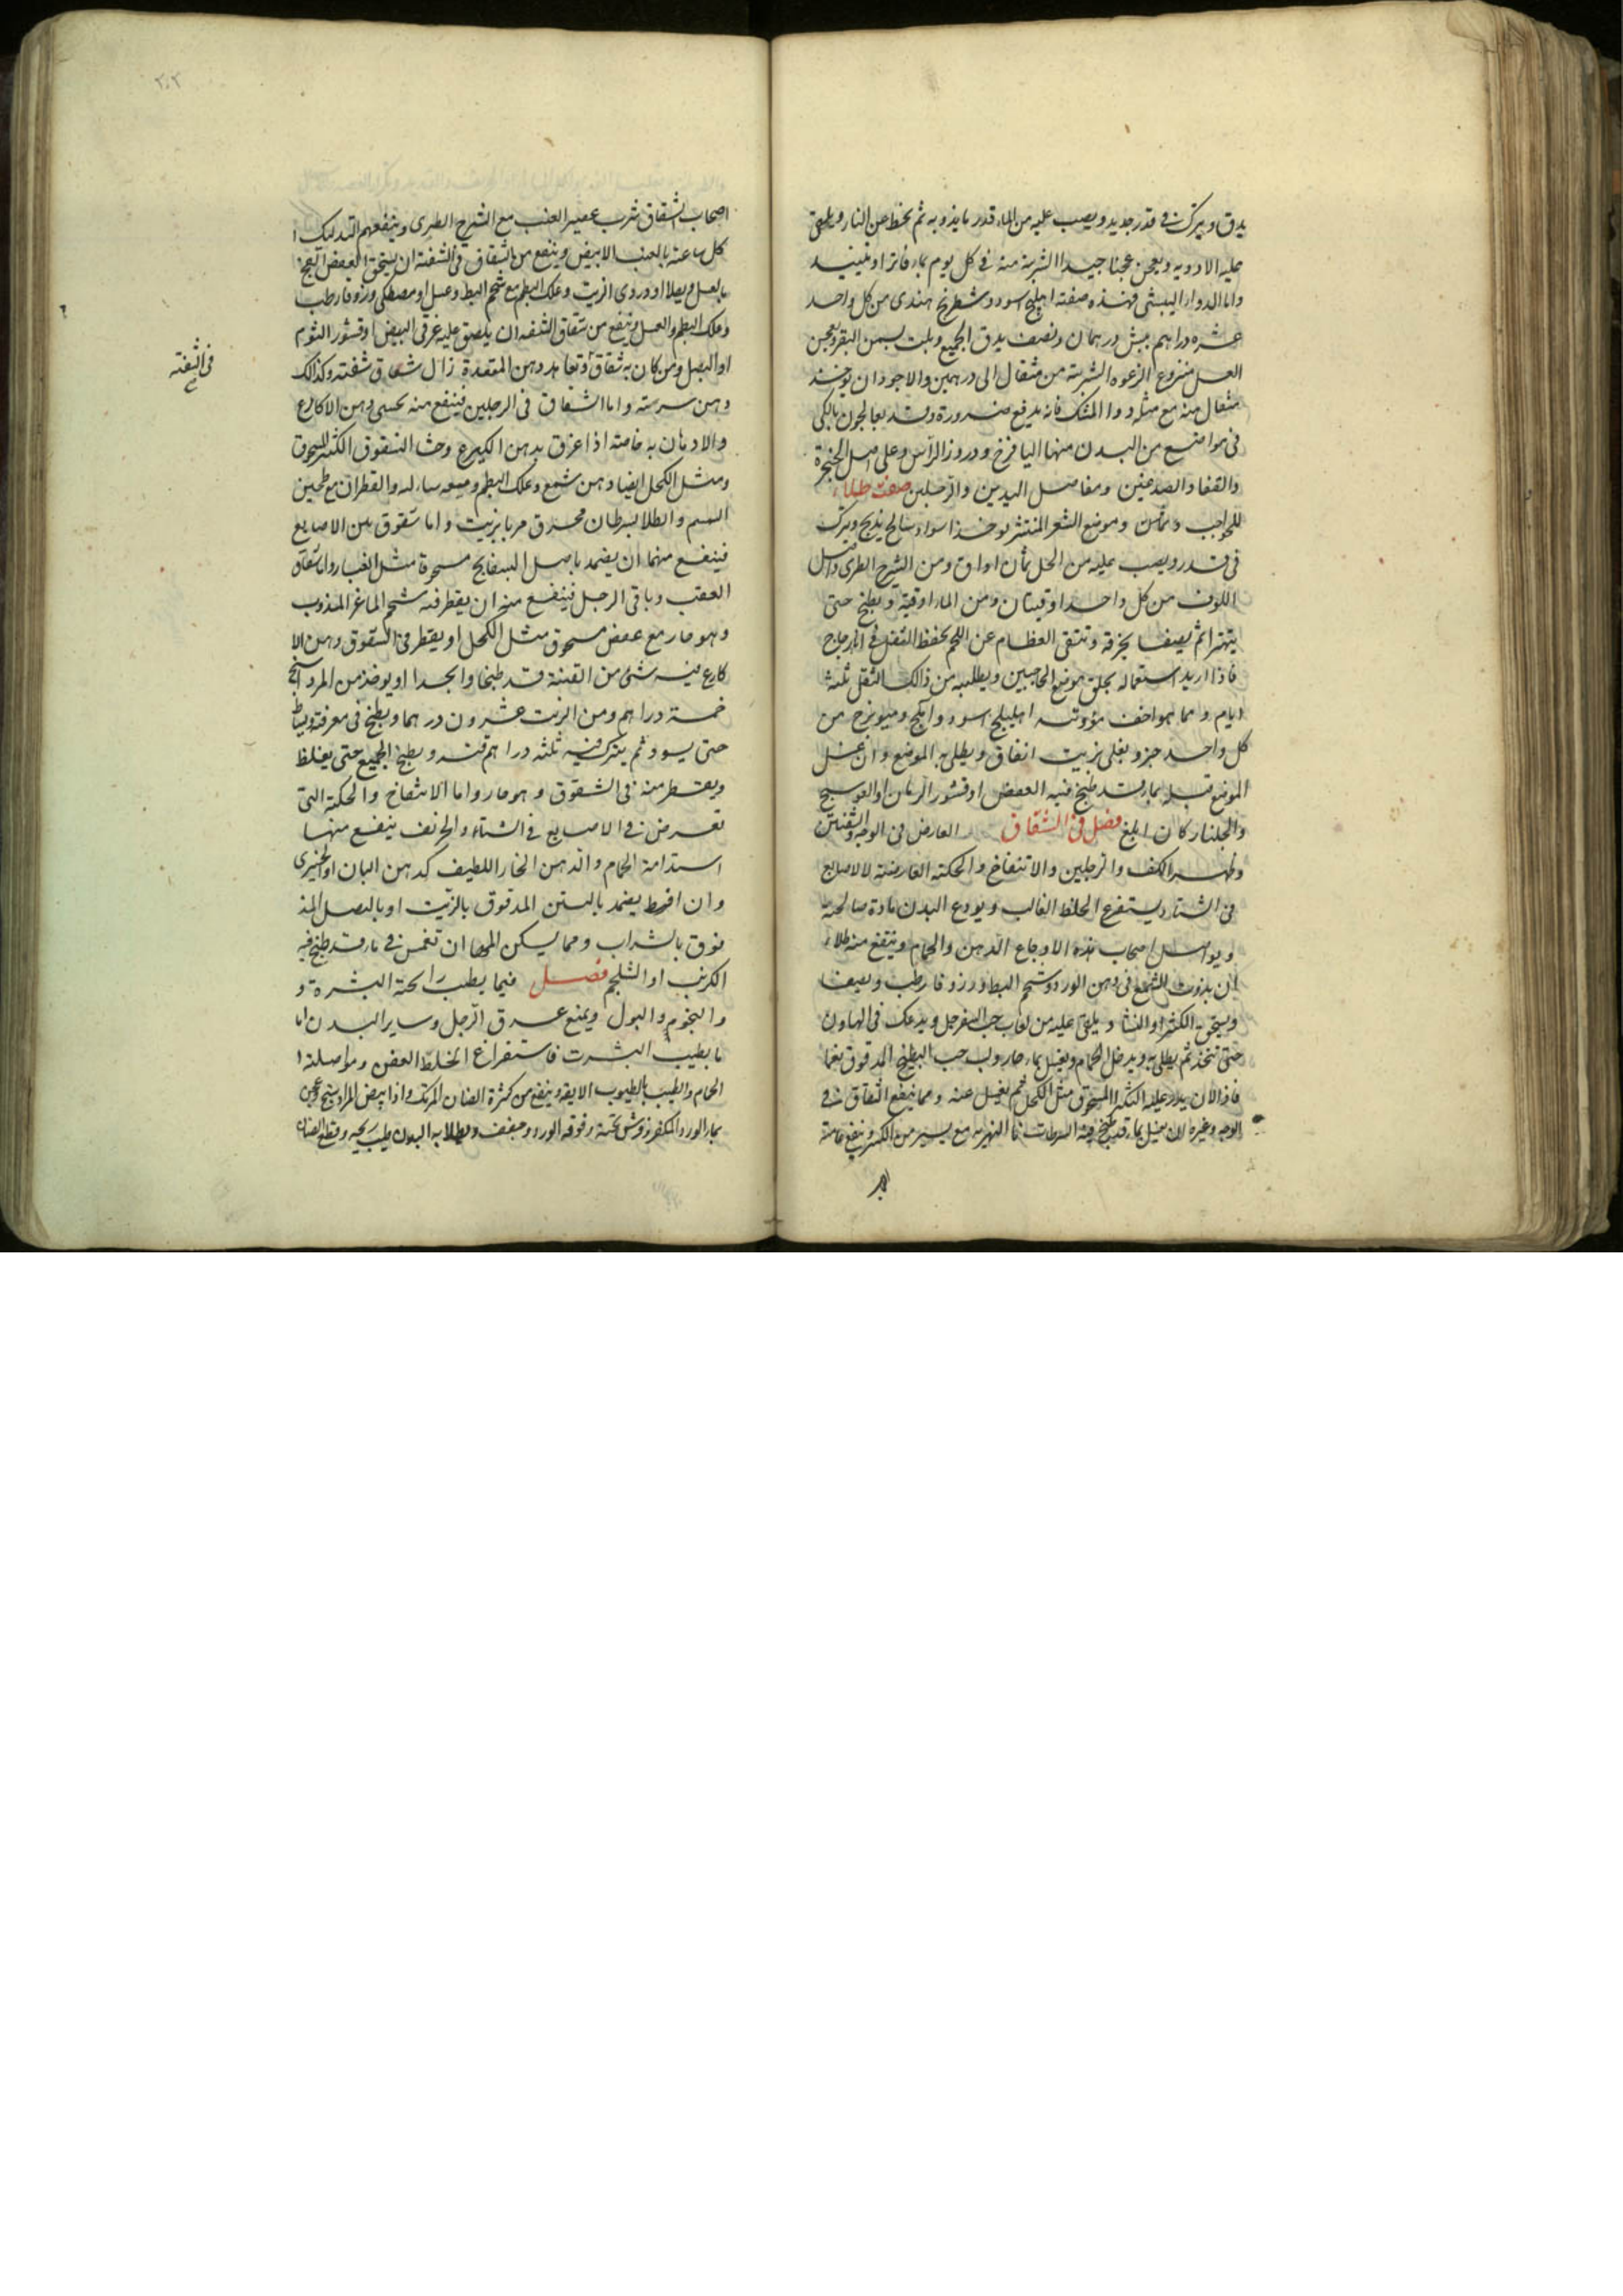 يدق ويترك في قدر جديد ويصب عليه من الماء قدر ما يذوبه ثم يحط عن النار ويلقى
عليه الادويه ويعجن عجنا جيدا الشربة منه في كل يوم بماء فاتر او نبيذ
واما الدواء البيشى فهذه صفته اهليلج اسود وشيطرج هندى من كل واحد
عشره دراهم بيش درهمان ونصف يدق الجميع ويلت بسمن البقر ويعجن
العسل منزوع الرغوه الشربة من مثقال الى درهمين والاجود ان يوخذ
مثقال منه مع مثله دوا المسك فانه يدفع ضرورة وقد يعالجون بالكى
فى مواضع من البدن منها اليافوخ ودروز الراس وعلى اصل الحنجرة
والقفا والصدغين ومفاصل اليدين والرجلين صفت طلاء
للحواجب وموضع الشعر المنتثر يوخذ اسود سالح يذبح ويترك
فى قدر ويصب عليه من الخل ثمان اواق ومن الشيرج الطرى واصل
اللوف من كل واحد اوقيتان ومن الماء اوقية ويطبخ حتى
يتهرا ثم يصفا بخرقه وتنقى العظام عن اللحم يحفظ الثفل فى
فاذا اريد استعماله يحلق موضع الحاجبين ويطليه من ذالك الثفل ثلثه
ايام ومما هو اخف مؤونته اهليلج اسود وميوبزج من
كل واحد جزو يغلى بزيت انفاق ويطلى به الموضع وان غسل
الموضع قبله بما قد طبخ فيه العفص او قشور الرمان او العوسج
والجلنار كان ابلغ فصل فى الشقاق العارض فى الوجه والشفتين
وظهر الكف والرجلين والانتفاخ والحكته العارضة لالاصابع
فى الشتاء يستفرغ الخلط الغالب ويودع البدن مادة صالحة
ويواصل اصحاب هذه الاوجاع الدهن والحمام وينتفع منه طلاء
ان يذوب الشمع فى دهن الورد وشحم البط وزوفا رطب ويصفا
ويسحق الكثيرا والنشا ويلقى عليه من لعاب حب السفرجل ويدعك فى الهاون
حتى تتخذ ثم يطلى به ويدخل الحمام ويغسل بماء حار ولب حب البطيخ المدقوق نعما
فاذا لان يذر عليه الكثيرا المسحوق مثل الكحل ثم يغسل عنه ومما ينفع الشقاق فى
الوجه وغيره ان يغسل بماء قد طبخ فيه السرطانات النهريه مع يسير من الكرنب
اصحاب الشقاق شرب عصير العنب مع الشيرج الطرى وينفعهم التدليك
كل ساعته بالعنب الابيض وينفع من الشقاق فى الشفة ان يسحق العفص
بالعسل ويطلا او دردى الزيت وعلك البطم مع شحم البط وعسل او مصطكى وزوفا رطب
وعلك البطم والعسل وينفع من شقاق الشفه ان يلصق عليه غرقى البيض او قشور الثوم
او البصل ومن كان به شقاق وتعاهد دهن المقعدة زال شقاق شفته وكذالك
دهن سرته واما الشقاق فى الرجلين فينفع منه دهن الاكارع
والادمان به خاصته اذا غرق بدهن وحشا الشقوق الكثير المسحوق
ومثل الكحل ايضا دهن شمع وعلك البطم وميعه سائله والقطران مع طحين
السمسم والطلا بسرطان محرق مربا بزيت واما شقوق بين الاصابع
فينفع منها ان يضمد باصل البسفايج مسحوقا مثل الغبار واما شقاق
العقب وباقى الرجل فينفع منه ان يقطر فيه شحم الماعز المذوب
وهو حار مع عفص مسحوق مثل الكحل او يقطر فى الشقوق دهن الا
كارع فيه شىء من القنة قد طبخا او يوخذ من المرداسنج
خمسة دراهم ومن الزيت عشرون درهما ويطبخ فى مغرفة ويساط
حتى يسود ثم يترك فيه ثلثه دراهم قنه ويطبخ الجميع حتى يغلظ
ويقطر منه فى الشقوق وهو حار واما الانتفاخ والحكة التى
تعرض فى الاصابع فى الشتاء والخريف ينفع منها
استدامة الحمام والدهن الحار اللطيف كدهن البان او الخيرى
وان افرط يضمد بالتين المدقوق بالزيت او بالبصل المد
قوق بالشراب ومما يسكن ان تغمس فى ماء قد طبخ فيه
الكرنب او الشلجم فصل فيما يطيب رائحة البشرة و
والبول ويمنع عرق الرجل وساير البدن اما
ما يطيب البشرت فاستفراغ الخلط العفن ومواصلة ا
الحمام والطيب بالطيوب وينفع من كثرة الصنان المرتك واذا
بماء الورد وفوقه الورد وجفف وطلا به البدن طيب ريحه وقطع الصنان
فى الشفته
٢٠٢